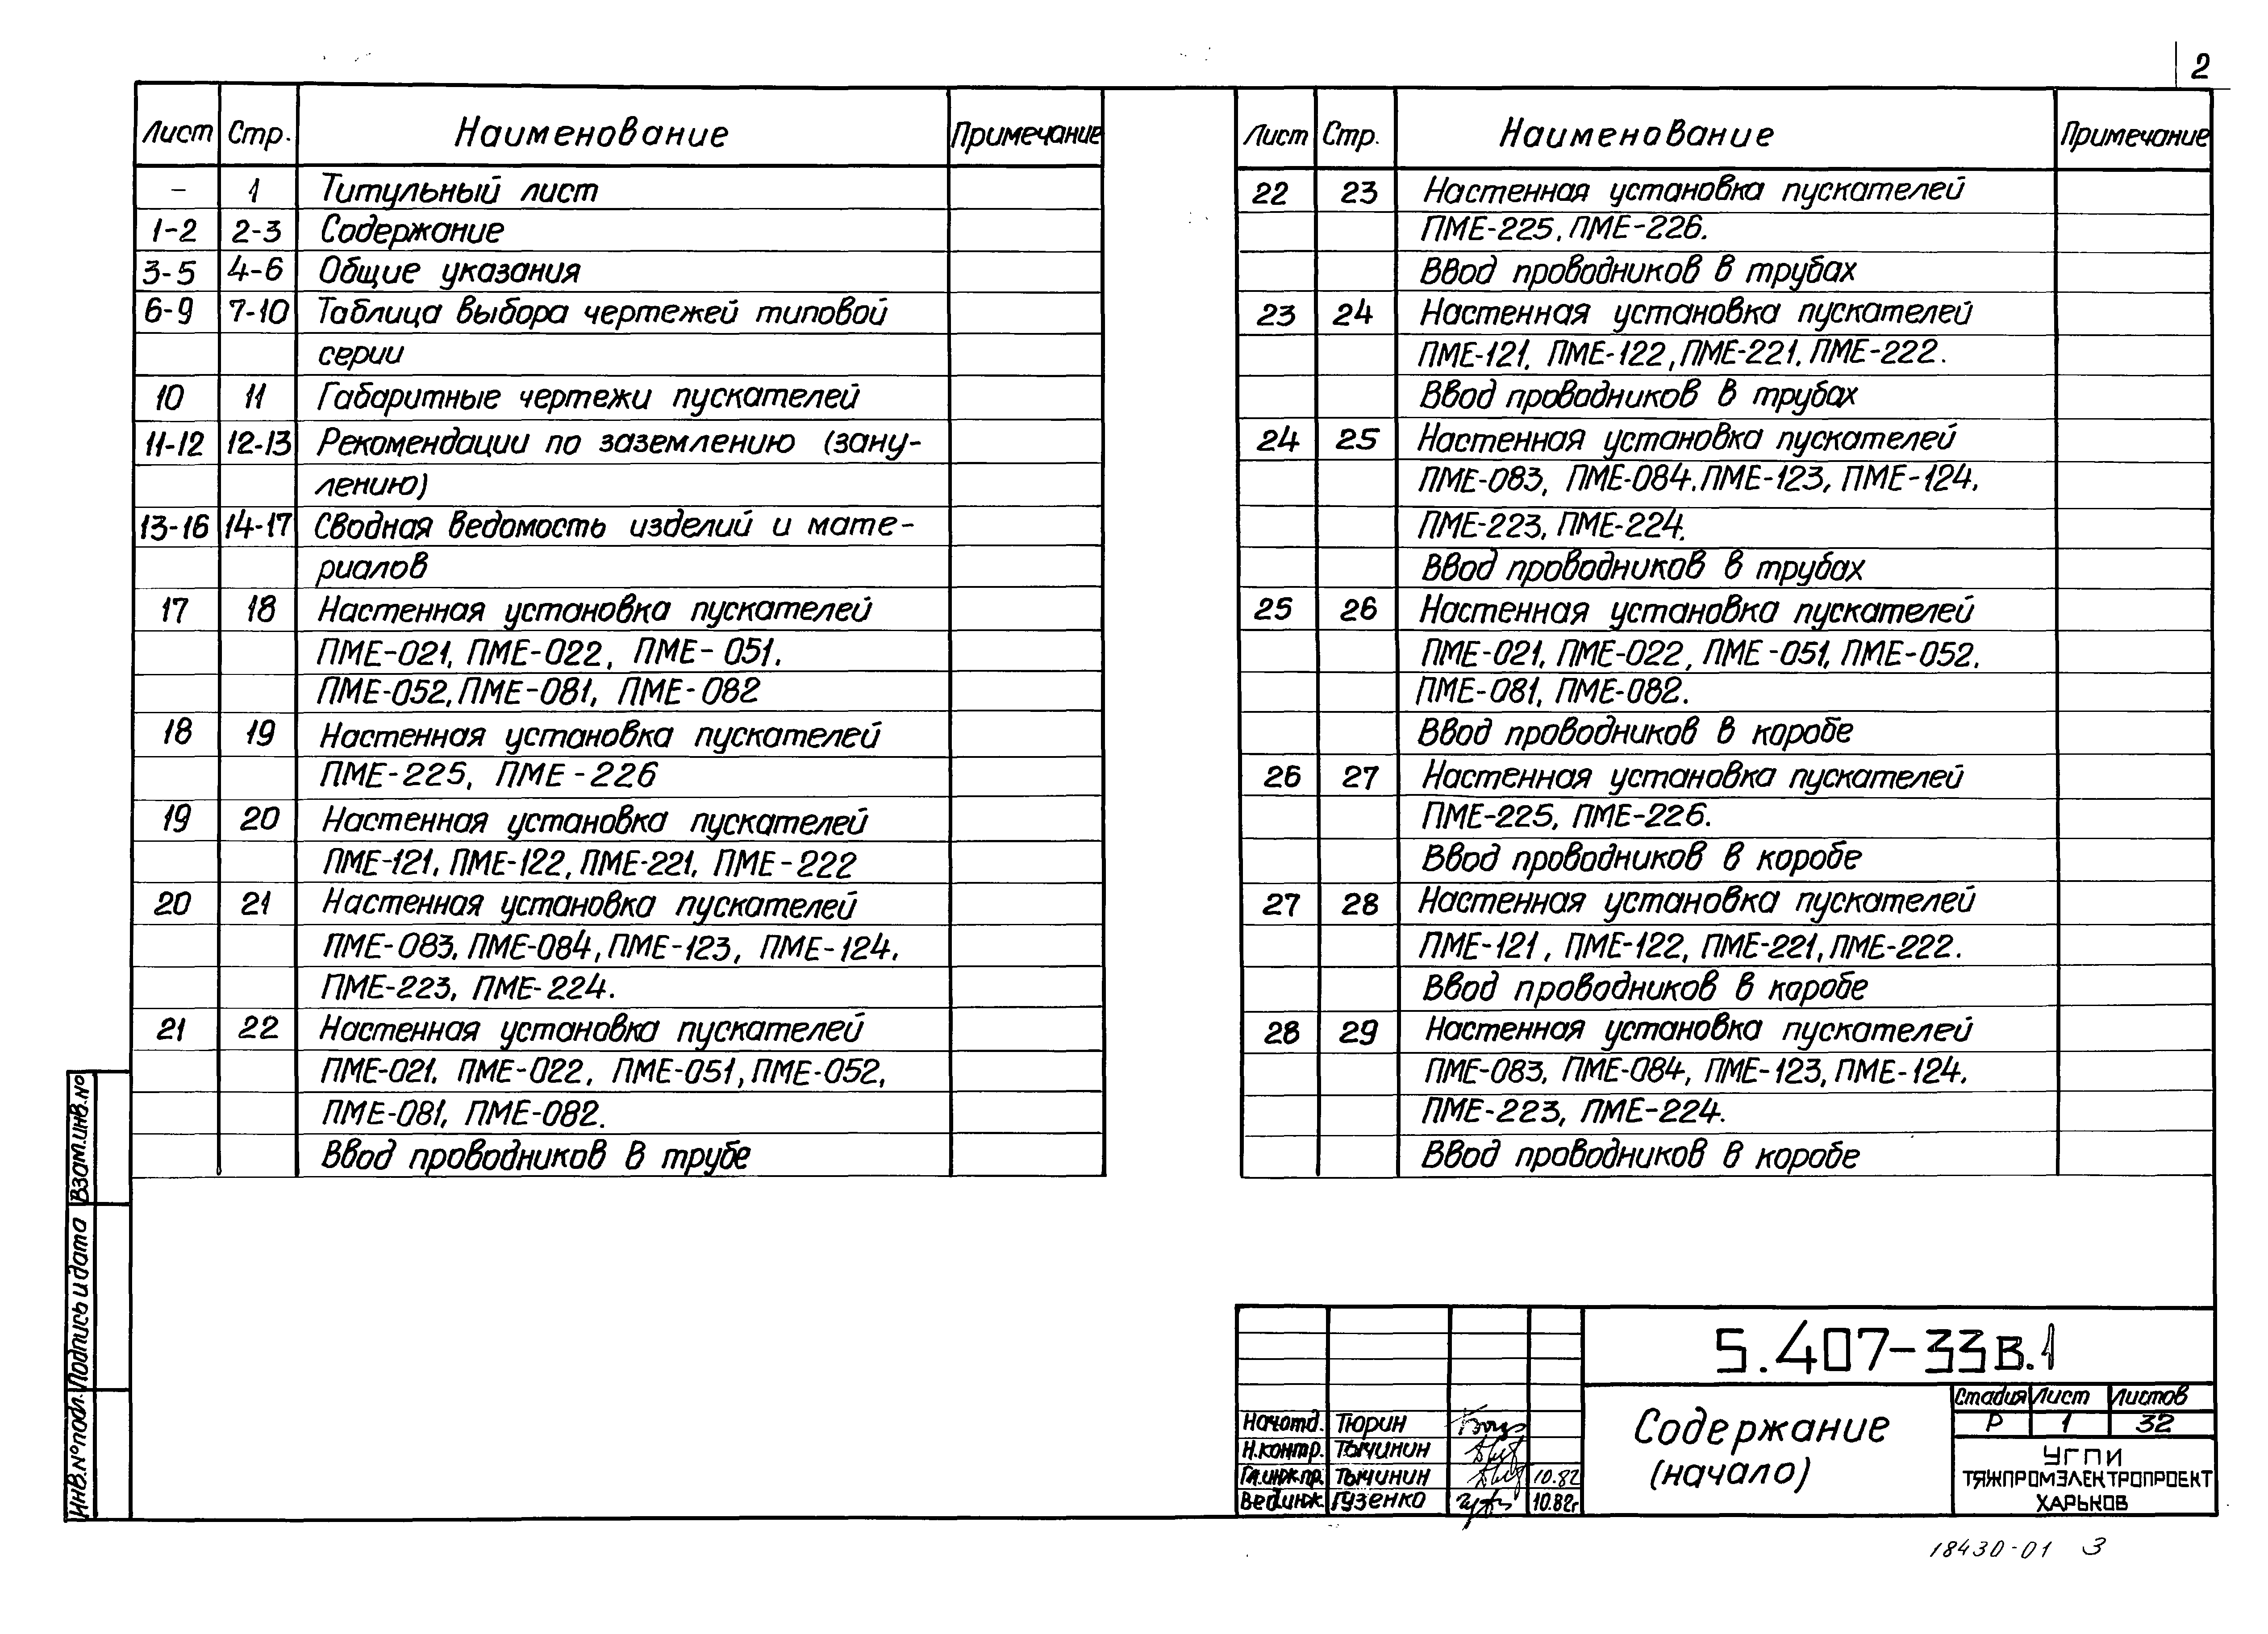 2
Лист Стр. Наименование Примечание
- 1 Титульный лист
1-2 2-3 Содержание
3-5 4-6 Общие указания
6-9 7-10 Таблица выбора чертежей типовой
серии
10 11 Габаритные чертежи пускателей
11-12 12-13 Рекомендации по заземлению (зану-
лению)
13-16 14-17 Сводная ведомость изделий и мате-
риалов
17 18 Настенная установка пускателей
ПМЕ-021, ПМЕ-022, ПМЕ-051,
ПМЕ-052, ПМЕ-081, ПМЕ-082
18 19 Настенная установка пускателей
ПМЕ-225, ПМЕ-226
19 20 Настенная установка пускателей
ПМЕ-121, ПМЕ-122, ПМЕ-221, ПМЕ-222
20 21 Настенная установка пускателей
ПМЕ-083, ПМЕ-084, ПМЕ-123, ПМЕ-124,
ПМЕ-223, ПМЕ-224.
21 22 Настенная установка пускателей
ПМЕ-021, ПМЕ-022, ПМЕ-051, ПМЕ-052,
ПМЕ-081, ПМЕ-082.
Ввод проводников в трубе
Лист Стр. Наименование Примечание
22 23 Настенная установка пускателей
ПМЕ-225, ПМЕ-226.
Ввод проводников в трубах
23 24 Настенная установка пускателей
ПМЕ-121, ПМЕ-122, ПМЕ-221, ПМЕ-222.
Ввод проводников в трубах
24 25 Настенная установка пускателей
ПМЕ-083, ПМЕ-084, ПМЕ-123, ПМЕ-124,
ПМЕ-223, ПМЕ-224.
Ввод проводников в трубах
25 26 Настенная установка пускателей
ПМЕ-021, ПМЕ-022, ПМЕ-051, ПМЕ-052,
ПМЕ-081, ПМЕ-082.
Ввод проводников в коробе
26 27 Настенная установка пускателей
ПМЕ-225, ПМЕ-226.
Ввод проводников в коробе
27 28 Настенная установка пускателей
ПМЕ-121, ПМЕ-122, ПМЕ-221, ПМЕ-222.
Ввод проводников в коробе
28 29 Настенная установка пускателей
ПМЕ-083, ПМЕ-084, ПМЕ-123, ПМЕ-124,
ПМЕ-223, ПМЕ-224.
Ввод проводников в коробе
Взам.инв.№
Подпись и дата
Инв.№подл.
5.407-33 в.1
Нач.отд. Тюрин
Н.контр. Тычинин
Гл.инж.пр. Тычинин 10.82
Вед.инж. Гузенко 10.82г
Содержание
(начало)
Стадия Лист Листов
Р 1 32
УГПИ
ТЯЖПРОМЭЛЕКТРОПРОЕКТ
ХАРЬКОВ
18430-01 3